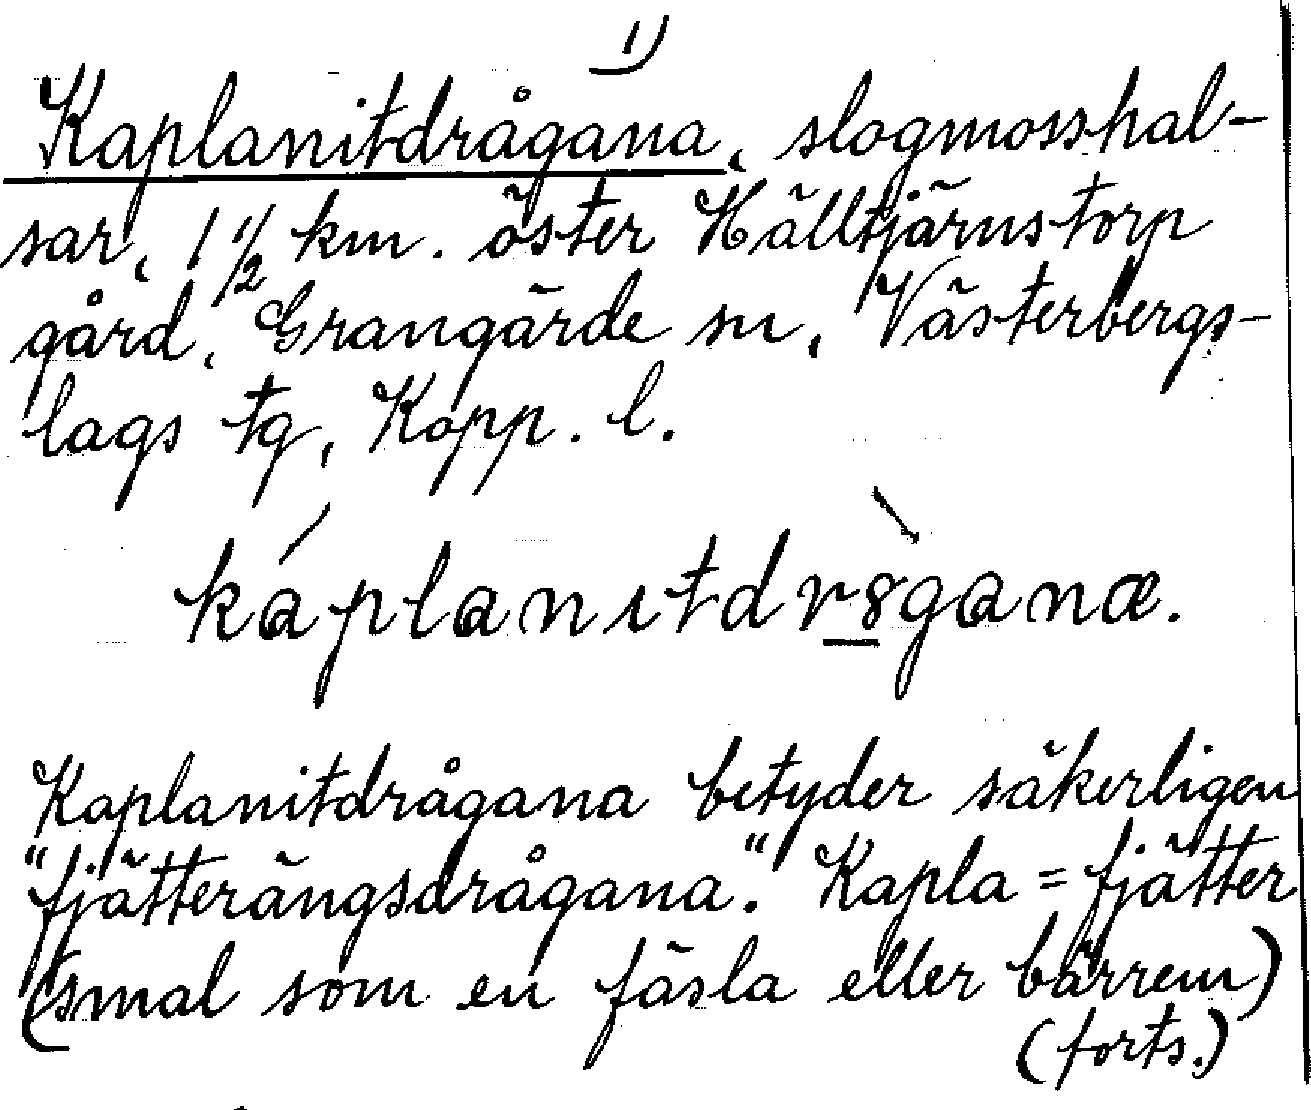 1)
Kaplanitdrågana, slogmosshal-
sar, 1 1/2 km. öster Hälltjärnstorp
gård, Grangärde sn, Västerbergs-
lags tg, Kopp. l.
káplanıtdr8̀ganæ.
Kaplanitdrågana betyder säkerligen
"fjätterängsdrågana." Kapla = fjätter
(smal som en fäsla eller bärrem)
(forts.)